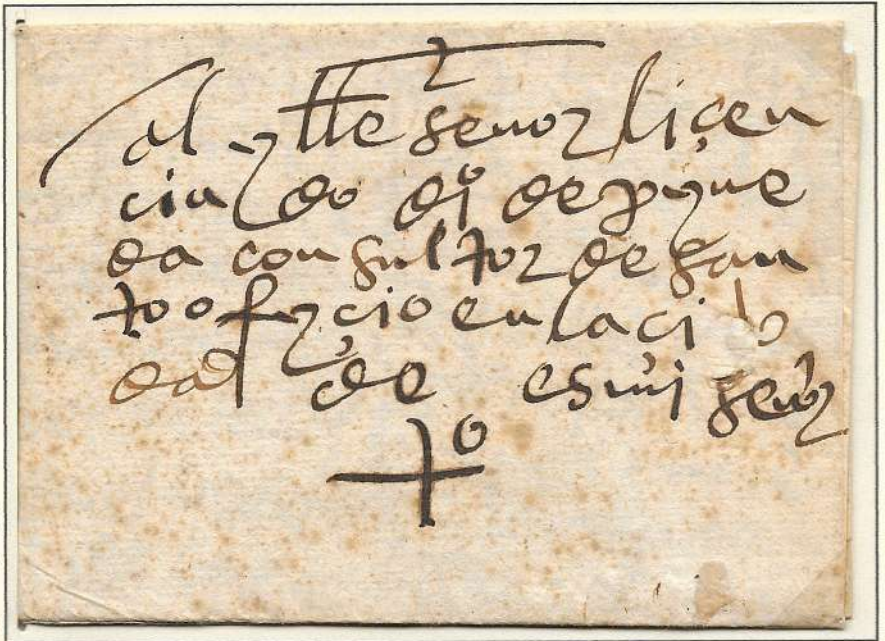 al ylle señor liçen
ciado dio de pyne
da consultor de san
to ofyçio en la ci
dad de es mi señor